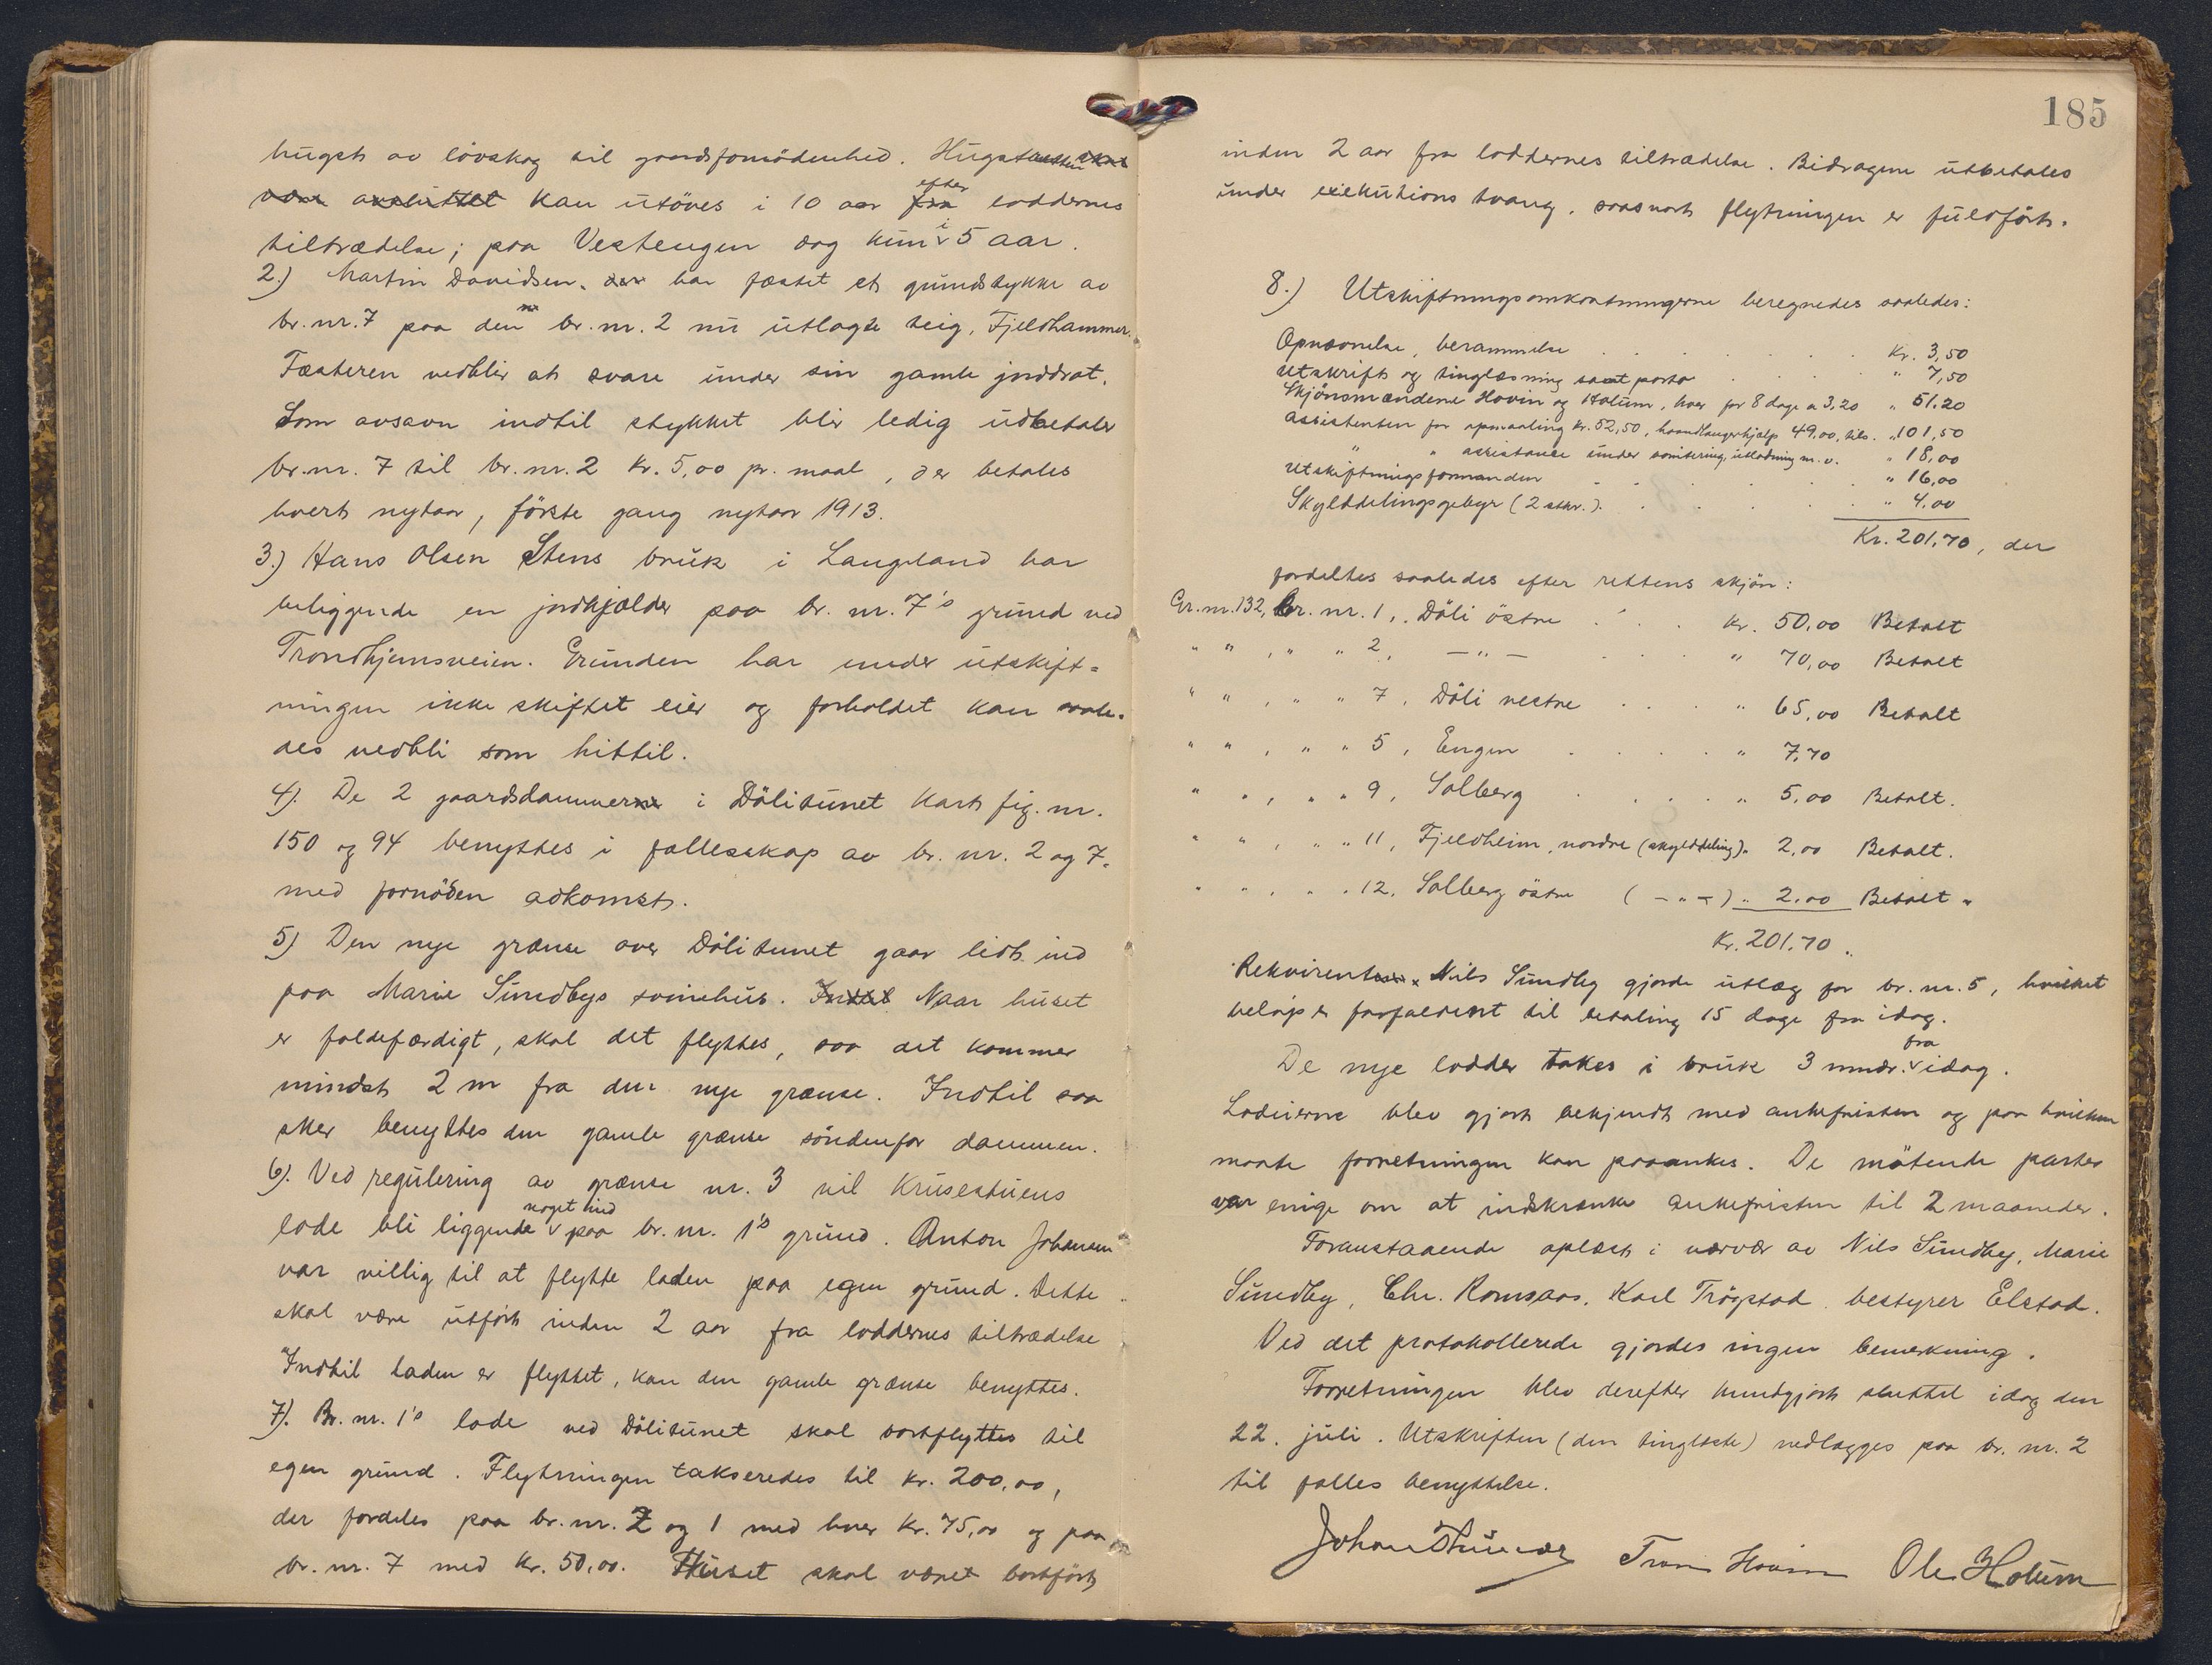 hugst av lövskog til gaardsfornödenhed. Hugsten skal
være avsluttet kan utöves i 10 aar fra efter loddernes
tiltrædelse; paa Vestengen dog kun i 5 aar.
2.) Martin Davidsen. der har fæstet et grundstykke av
br. nr. 7 paa den br. nr. 2 nu utlagte teig, Fjeldhammer.
Fæsteren vedblir at svare under sin gamle jorddrot.
Som avsavn indtil stykket blir ledig udbetaler
br. nr. 7 til br. nr. 2 kr. 5,00 pr. maal, der betales
hvert nytaar, förste gang nytaar 1913.
3.) Hans Olsen Stens bruk i Langeland har
beliggende en jordkjælder paa br. nr. 7's grund ved
Trondhjemsveien. Grunden har under utskift=
ningen ikke skiftet eier og forholdet kan saale-
des vedbli som hittil.
4). De 2 gaardsdammer i Dölitunet kart fig. nr.
150 og 94 benyttes i fællesskap av br. nr. 2 og 7.
med fornöden adkomst.
5) Den nye grænse over Dölitunet gaar lidt ind
paa Marie Sundbys svinehus. Indtil Naar huset
er faldefærdigt, skal det flyttes, saa det kommer
mindst 2 m fra den nye grænse. Indtil saa
sker benyttes den gamle grænse söndenfor dammen.
6). Ved regulering av grænse nr. 3 vil Krusestuens
lade bli liggende noget ind paa br. nr. 1's grund. Anton Johansen
var villig til at flytte laden paa egen grund. Dette
skal være utfört inden 2 aar fra loddernes tiltrædelse
Indtil laden er flyttet, kan den gamle grænse benyttes.
7). Br. nr. 1's lade ved Dölitunet skal bortflyttes til
egen grund. Flytningen takseredes til kr. 200,00,
der fordeles paa br. nr. 2 og 1 med hver kr. 75,00 og paa
br. nr. 7 med kr. 50,00. Huset skal været bortfört
185
inden 2 aar fra loddernes tiltrædelse. Bidragene utbetales
under exekutions tvang, saasnart flytningen er fuldfört.
8.) Utskiftningsomkostningerne beregnedes saaledes:
Opnævnelse, berammelse . . . Kr. 3,50
Utskrift og tinglæsning samt porto . . . " 7,50
Skjönsmændene Hovin og Holum, hver for 8 dage a 3,20 " 51,20
Assistenten for opmaaling kr. 52,50, haandlangerhjælp 49,00, tils. " 101,50
" " assistance under bonitering, utlodning m. v. " 18,00
Utskiftningsformanden . . . " 16,00
Skylddelingsgebyr (2 stkr.) . . . " 4,00
Kr. 201,70, der
fordeltes saaledes efter rettens skjön:
Gr. nr. 132, Br. nr. 1, Döli östre . . . kr. 50,00 Betalt
" " , " " 2, — " — . . . " 70,00 Betalt
" " , " " 7, Döli vestre . . . " 65,00 Betalt
" " , " " 5, Engen . . . " 7,70
" " , " " 9, Solberg . . . " 5,00 Betalt.
" " , " " 11, Fjeldheim, nordre (skylddeling) " 2,00 Betalt.
" " , " " 12, Solberg östre ( — " — ) " 2,00 Betalt "
Kr. 201,70.
Rekvirenten Nils Sundby gjorde utlæg for br. nr. 5, hvilket
belöp er forfaldent til betaling 15 dage fra idag.
De nye lodder takes i bruk 3 mndr. fra idag.
Lodeierne blev gjort bekjendt med ankefristen og paa hvilken
maate forretningen kan paaankes. De mötende parter
var enige om at indskrænke ankefristen til 2 maaneder.
Foranstaaende oplæst i nærvær av Nils Sundby, Marie
Sundby, Chr. Romsaas, Karl Trögstad, bestyrer Elstad.
Ved det protokollerede gjordes ingen bemerkning.
Forretningen blev derefter kundgjort sluttet idag den
22. juli. Utskriften (den tinglæste) nedlægges paa br. nr. 2
til fælles benyttelse.
Johan Hovin Ole Holum